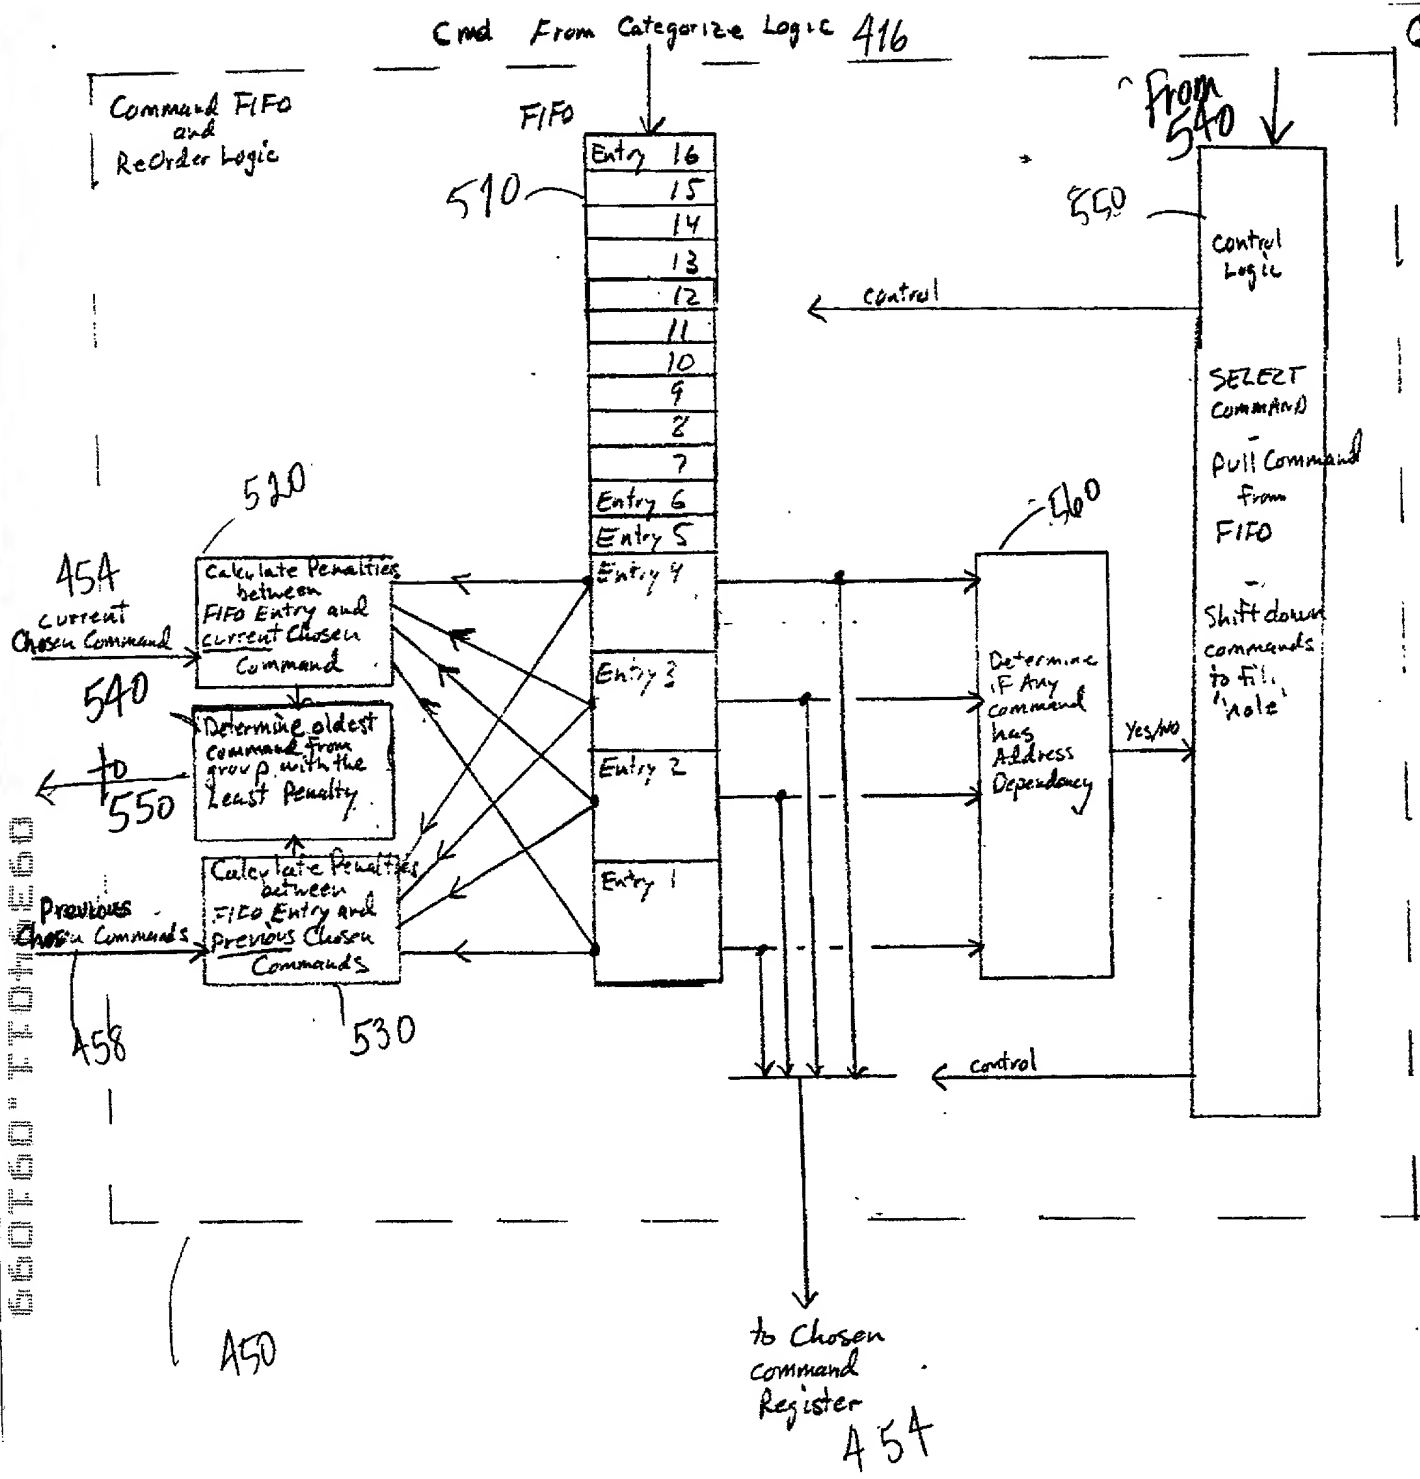 Cmd From Categorize Logic 416
Command FIFO
and
ReOrder Logic
FIFO
From
540
510
Entry 16
15
14
13
12
11
10
9
8
7
Entry 6
Entry 5
Entry 4
Entry 3
Entry 2
Entry 1
550
Control
Logic
SELECT
COMMAND
-
Pull Command
from
FIFO
-
Shift down
commands
to fill
'hole'
control
520
454
current
Chosen Command
Calculate Penalties
between
FIFO Entry and
current Chosen
Command
540
Determine oldest
command from
group with the
Least Penalty
to
550
Calculate Penalties
between
FIFO Entry and
previous Chosen
Commands
Previous
Chosen Commands
458
530
560
Determine
if Any
command
has
Address
Dependency
Yes/No
control
450
to Chosen
command
Register
454